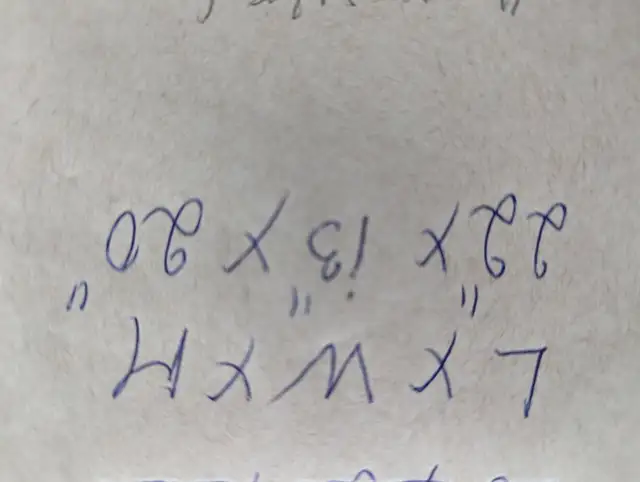 L x W x H
22" x 13" x 20"